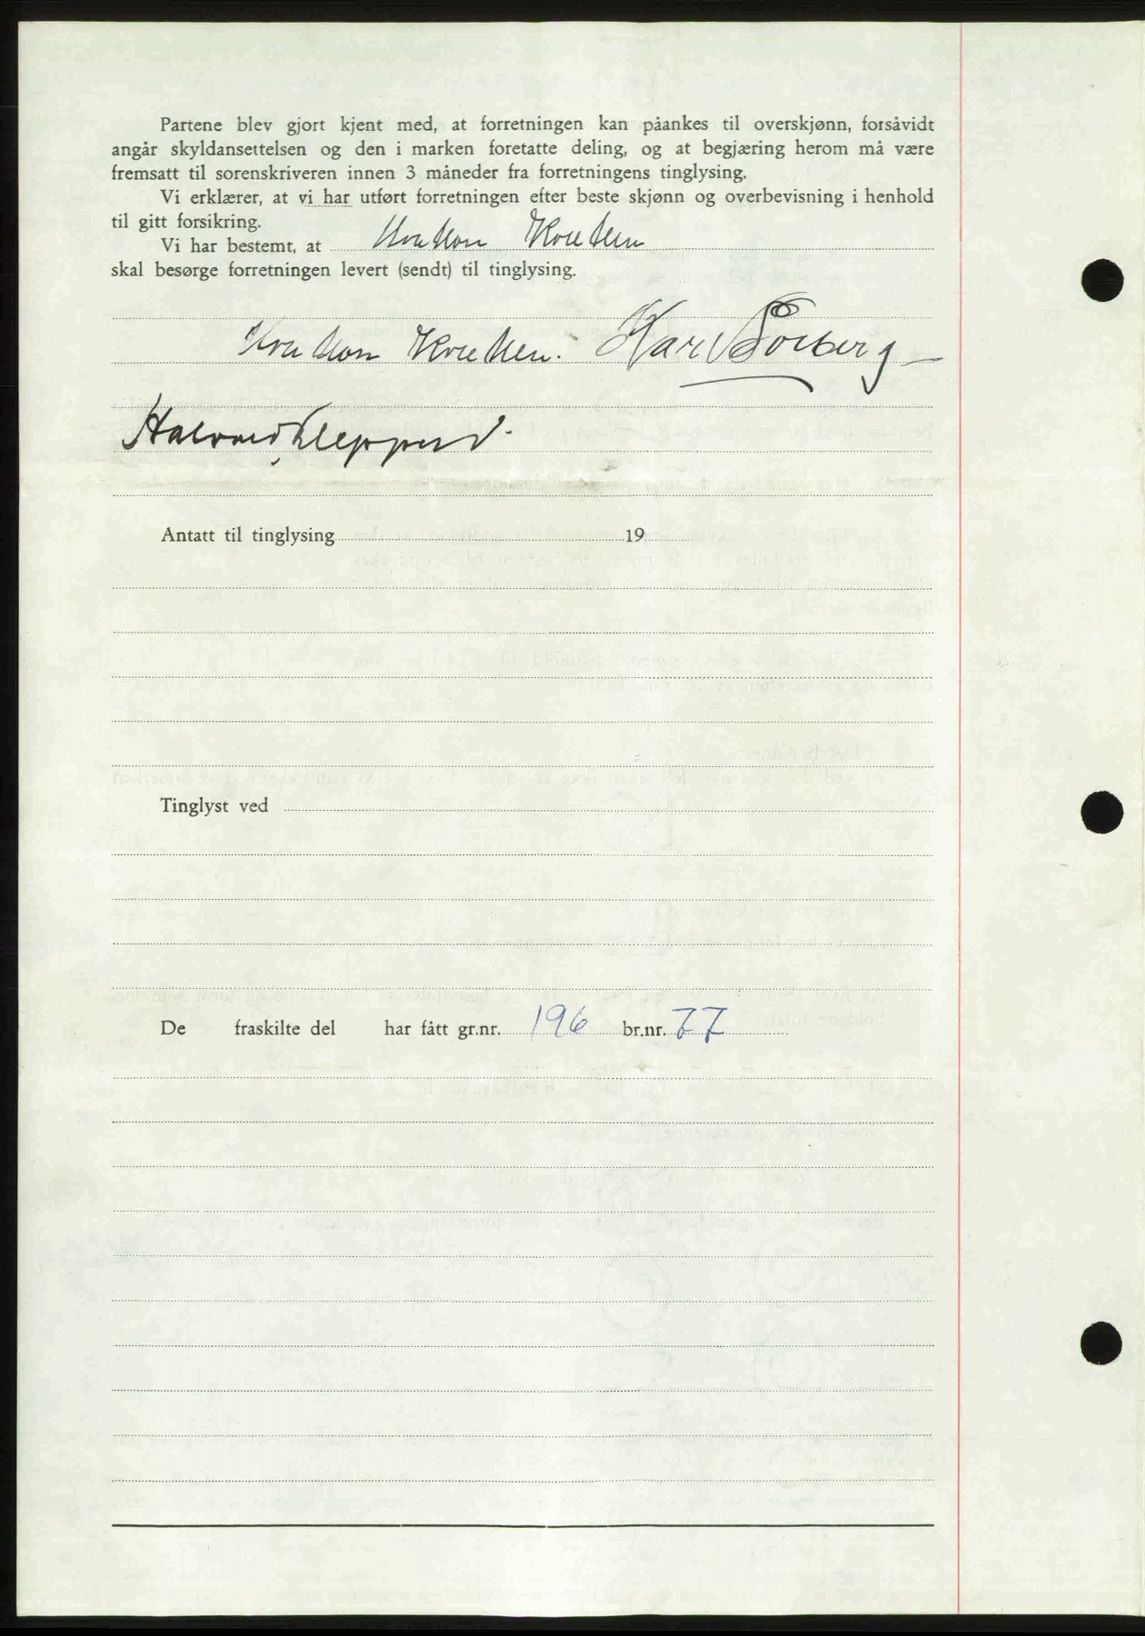 Partene blev gjort kjent med, at forretningen kan påankes til overskjønn, forsåvidt
angår skyldansettelsen og den i marken foretatte deling, og at begjæring herom må være
fremsatt til sorenskriveren innen 3 måneder fra forretningens tinglysing.
Vi erklærer, at vi har utført forretningen efter beste skjønn og overbevisning i henhold
til gitt forsikring.
Vi har bestemt, at Haakon
skal besørge forretningen levert (sendt) til tinglysing.
Haakon Karl
Halvard
Antatt til tinglysing 19
Tinglyst ved
De fraskilte del har fått gr.nr. 196 br.nr. 77